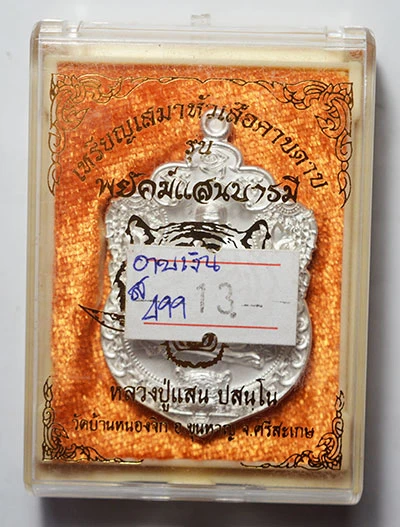 เหรียญเสมาหัวเสือคาบดาบ
รุ่น
พยัคฆ์แสนบารมี
อาบเงิน
13
499
หลวงปู่แสน ปสนฺโน
วัดบ้านหนองจิก อ.ขุนหาญ จ.ศรีสะเกษ